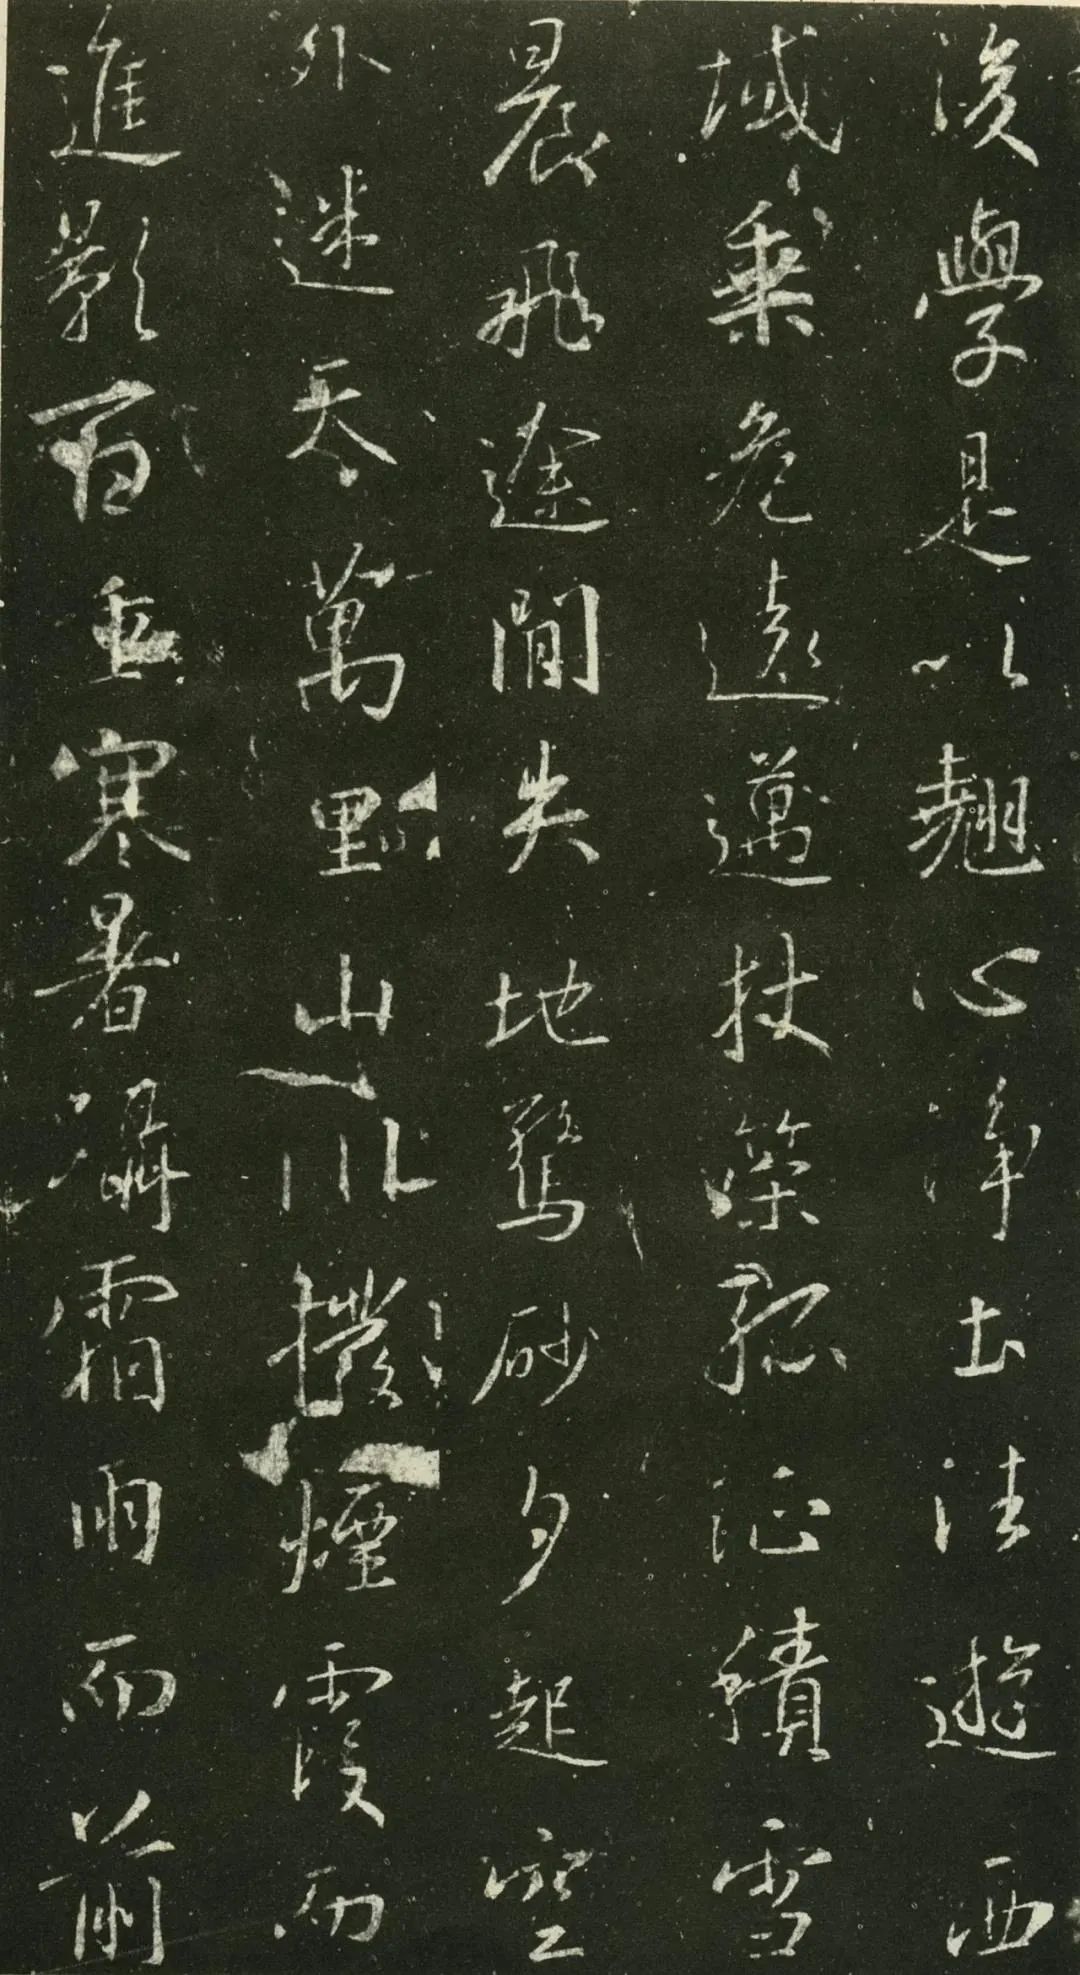 後學是以翹心淨土法遊西
域乗危遠邁杖策孤征積雪
晨飛途閒失地驚砂夕起空
外迷天萬里山川撥煙霞而
進影百重寒暑躡霜雨而前